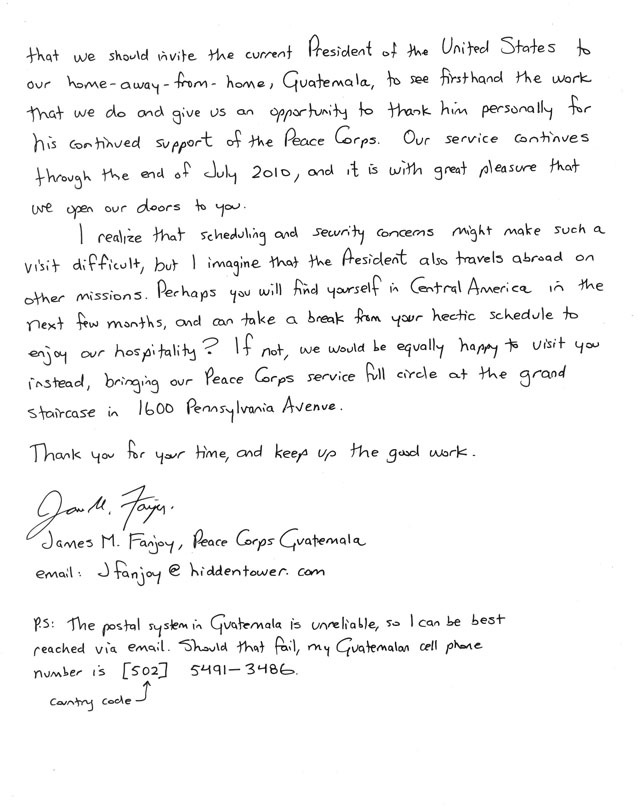 that we should invite the current President of the United States to
our home-away-from-home, Guatemala, to see firsthand the work
that we do and give us an opportunity to thank him personally for
his continued support of the Peace Corps. Our service continues
through the end of July 2010, and it is with great pleasure that
we open our doors to you.
I realize that scheduling and security concerns might make such a
visit difficult, but I imagine that the President also travels abroad on
other missions. Perhaps you will find yourself in Central America in the
next few months, and can take a break from your hectic schedule to
enjoy our hospitality? If not, we would be equally happy to visit you
instead, bringing our Peace Corps service full circle at the grand
staircase in 1600 Pennsylvania Avenue.
Thank you for your time, and keep up the good work.
James M. Fanjoy, Peace Corps Guatemala
email: Jfanjoy@hiddentower.com
P.S: The postal system in Guatemala is unreliable, so I can be best
reached via email. Should that fail, my Guatemalan cell phone
number is [502] 5491-3486.
country code